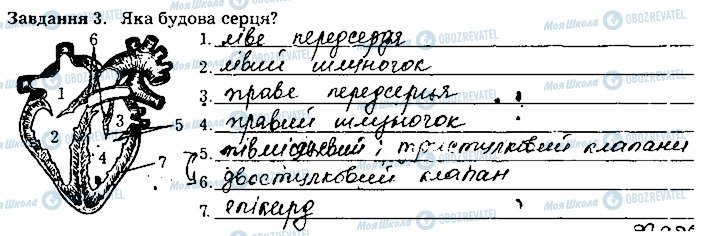 Завдання 3. Яка будова серця?
1. ліве передсердя
2. лівий шлуночок
3. праве передсердя
4. правий шлуночок
5. півмісяцевий і тристулковий клапани
6. двостулковий клапан
7. епікард
6
1
2
3
4
5
7
Моя Школа OBOZREVATEL